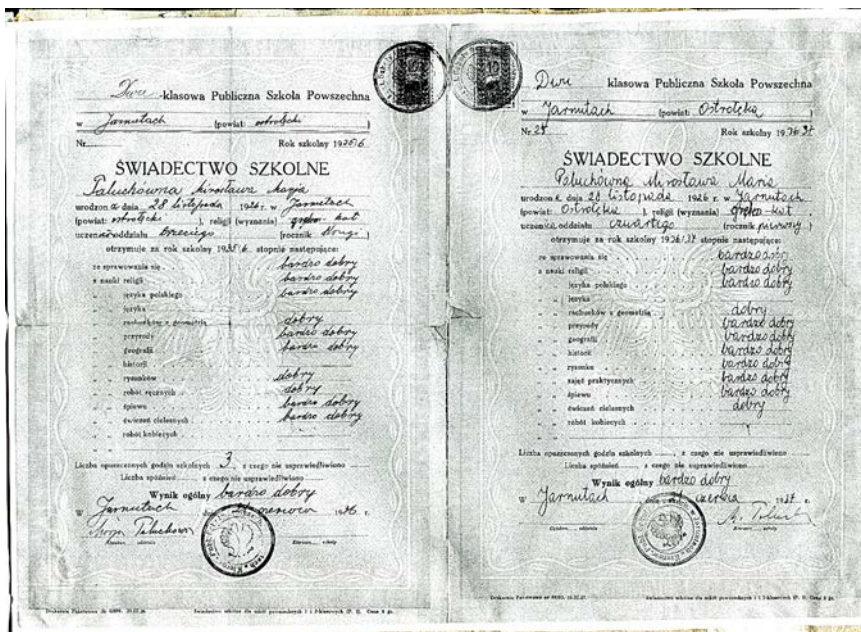 Dwu-klasowa Publiczna Szkoła Powszechna
w Jarnutach (powiat: ostrołęcki)
Nr. Rok szkolny 1935/6
ŚWIADECTWO SZKOLNE
Paluchówna Mirosława Marja
urodzona dnia 28 listopada 1926 r. w Jarnutach
(powiat: ostrołęcki ), religii (wyznania) rzym-kat
uczennica oddziału trzeciego (rocznik drugi )
otrzymuje za rok szkolny 1935/6 stopnie następujące:
ze sprawowania się bardzo dobry
z nauki religii bardzo dobry
" " języka polskiego bardzo dobry
" " języka
" " rachunków z geometrią dobry
" " przyrody bardzo dobry
" " geografii bardzo dobry
" " historii
" " rysunków dobry
" " robót ręcznych dobry
" " śpiewu bardzo dobry
" " ćwiczeń cielesnych bardzo dobry
" " robót kobiecych
Liczba opuszczonych godzin szkolnych 3, z czego nie usprawiedliwiono
Liczba spóźnień , z czego nie usprawiedliwiono
Wynik ogólny bardzo dobry
W Jarnutach dnia czerwca 1936 r.
Paluchowa
Dwu klasowa Publiczna Szkoła Powszechna
w Jarnutach (powiat: Ostrołęka )
Nr. 25 Rok szkolny 1936/37
ŚWIADECTWO SZKOLNE
Paluchówna Mirosława Maria
urodzona dnia 28 listopada 1926 r. w Jarnutach
(powiat: Ostrołęka ), religii (wyznania) rzym-kat.
uczennica oddziału czwartego (rocznik pierwszy )
otrzymuje za rok szkolny 1936/37 stopnie następujące:
ze sprawowania się bardzo dobry
z nauki religii bardzo dobry
" " języka polskiego bardzo dobry
" " języka
" " rachunków z geometrią dobry
" " przyrody bardzo dobry
" " geografii bardzo dobry
" " historii bardzo dobry
" " rysunku bardzo dobry
" " zajęć praktycznych bardzo dobry
" " śpiewu bardzo dobry
" " ćwiczeń cielesnych dobry
" " robót kobiecych
Liczba opuszczonych godzin szkolnych , z czego nie usprawiedliwiono
Liczba spóźnień , z czego nie usprawiedliwiono
Wynik ogólny bardzo dobry
W Jarnutach dnia 21 czerwca 1937 r.